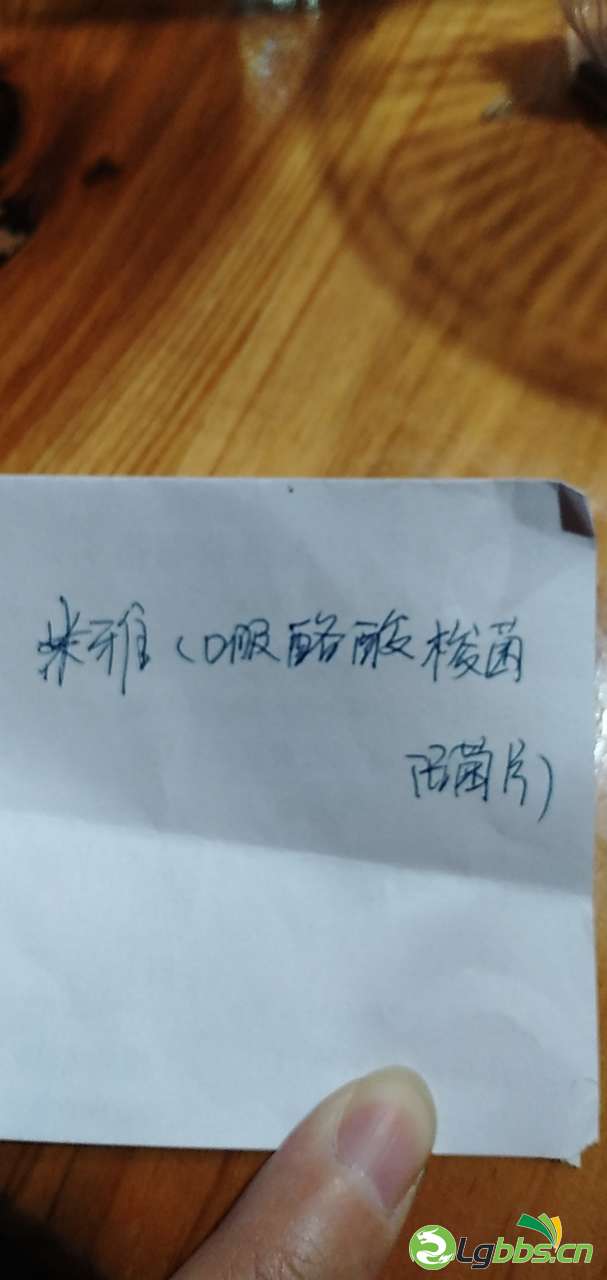 米雅（口服酪酸梭菌
活菌片）
Lgbbs.cn